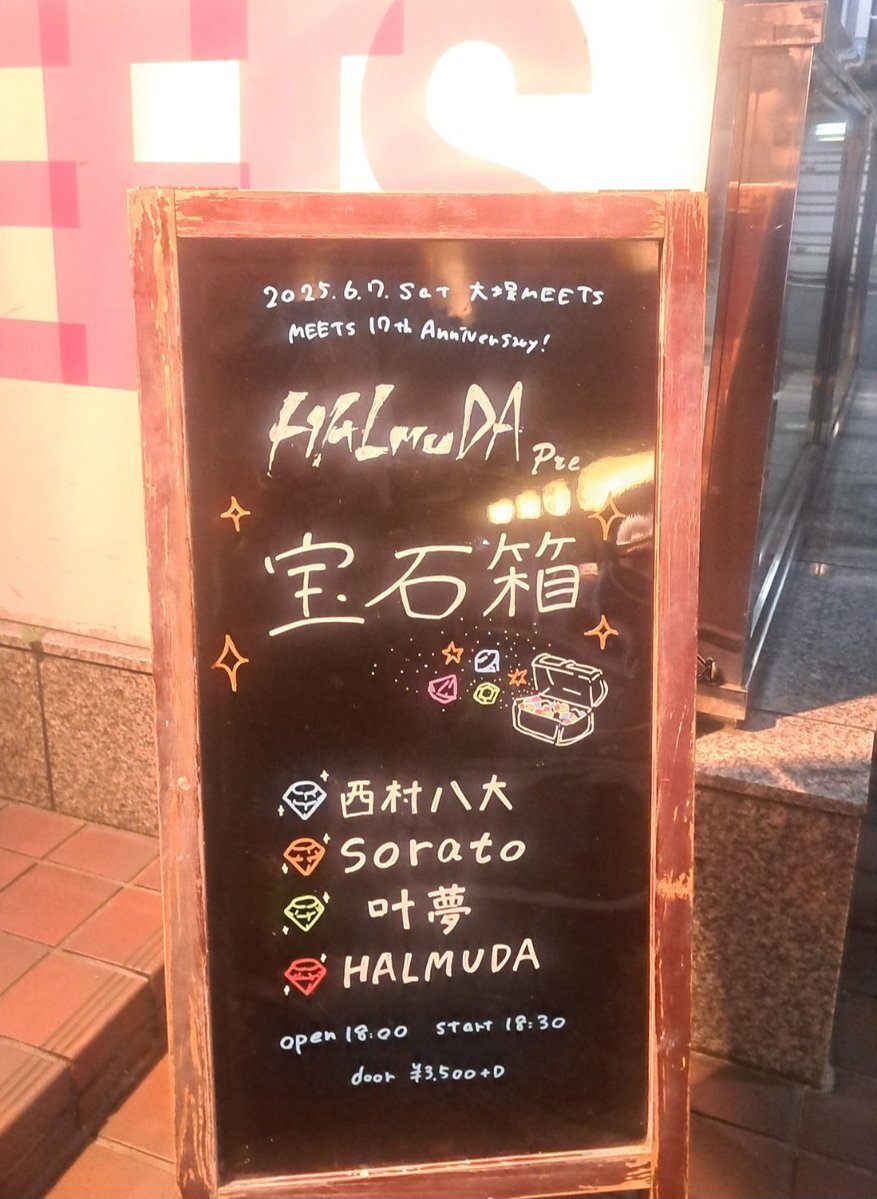 EETS
2025.6.7. Sat 大塚MEETS
MEETS 17th Anniversary!
HALMUDA Pre
宝石箱
西村八大
Sorato
叶夢
HALMUDA
open 18:00 start 18:30
door ¥3,500+D